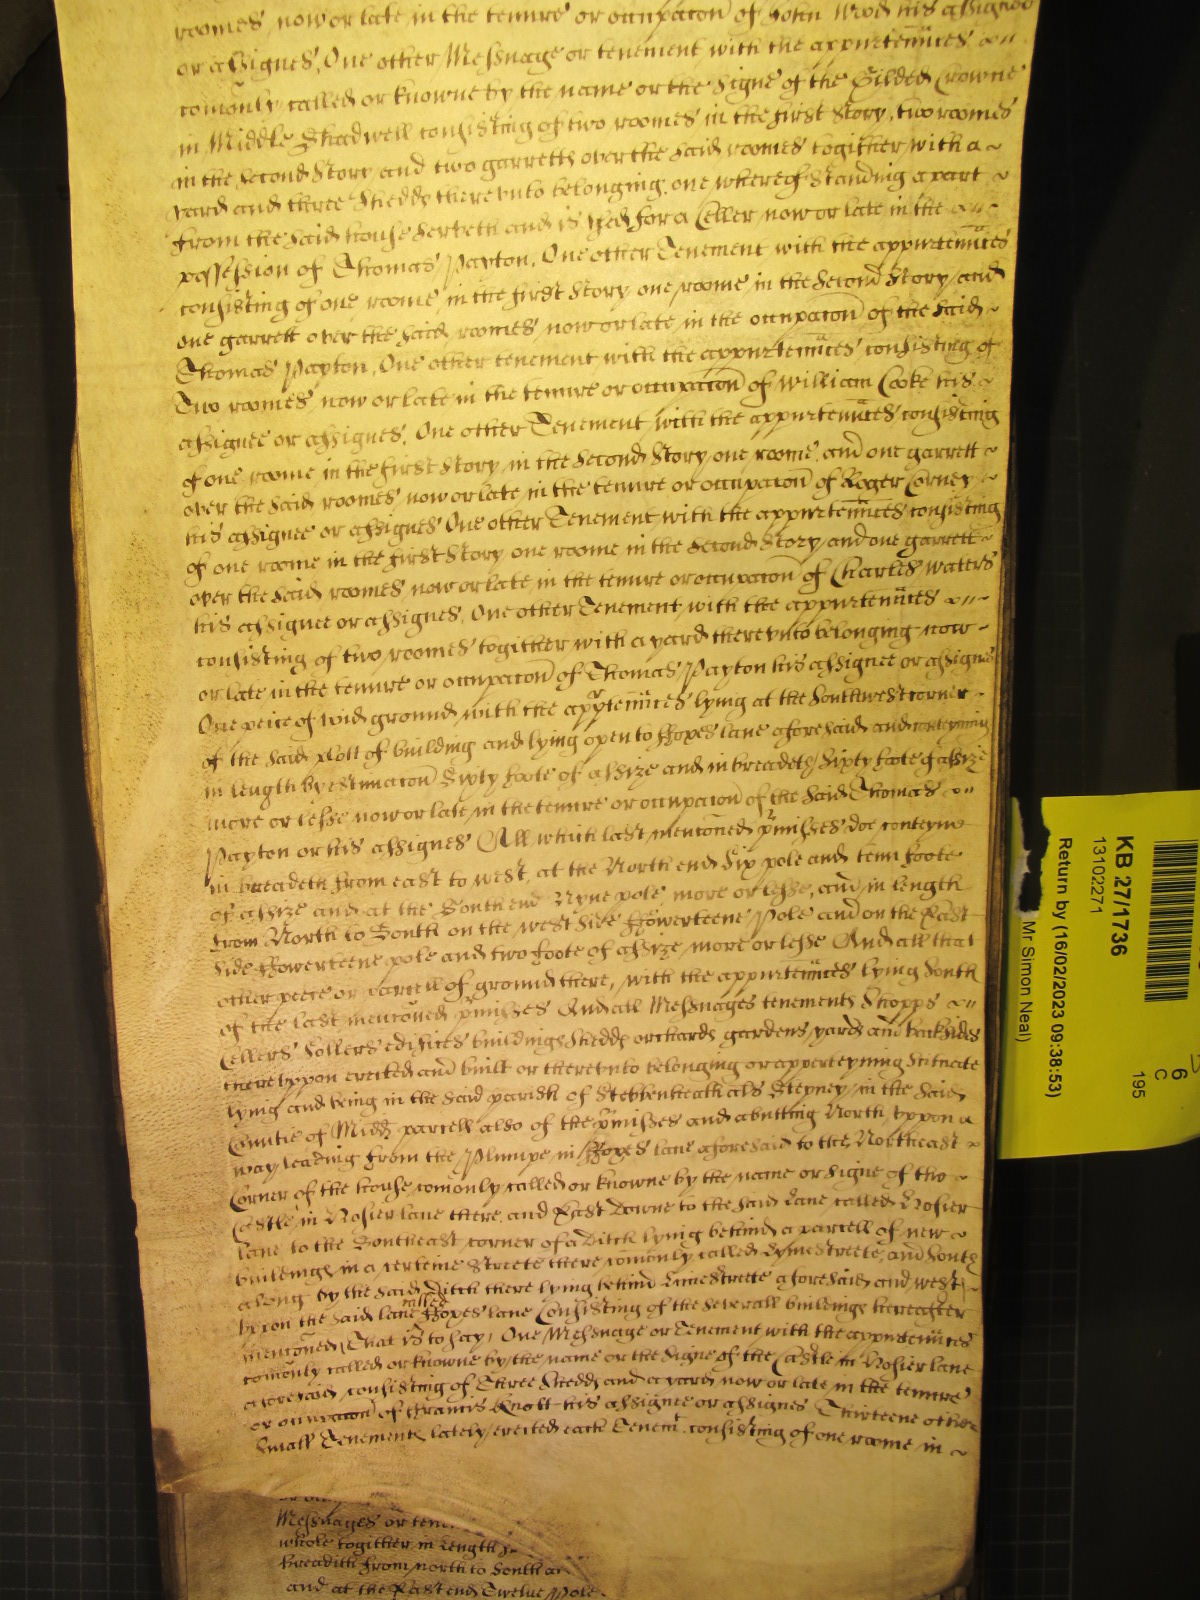 roomes, now or late in the tenure or occupacon of John Wood his assignee
or assignes, One other Messuage or tenement with the appurtenũces
comonly called or knowne by the name or the Signe of the Gilded Crowne
in Middle Shadwell consisting of two roomes in the first Story, two roomes
in the second Story and two garretts over the said roomes togither with a
yard and three Shedds therevnto belonging, one whereof standing apart
from the said house serveth and is vsed for a Celler now or late in the
possession of Thomas Payton, One other Tenement with the appurtenũces
consisting of one roome in the first Story one roome in the second Story and
one garrett over the said roomes now or late in the occupacon of the said
Thomas Payton, One other tenement with the appurtenũces consisting of
Two roomes now or late in the tenure or occupacon of William Cooke his
assignee or assignes, One other Tenement with the appurtenũces consisting
of one roome in the first Story, in the second Story one roome, and one garrett
over the said roomes now or late in the tenure or occupacon of Roger Corney
his assignee or assignes One other Tenement with the appurtenũces consisting
of one roome in the first Story one roome in the second Story and one garrett
over the said roomes, now or late in the tenure or occupacon of Charles Waters
his assignee or assignes, One other Tenement with the appurtenũces
consisting of two roomes togither with a yard therevnto belonging now
or late in the tenure or occupacon of Thomas Payton his assignee or assignes
One peice of void ground with the apptenũces lying at the Southwest corner
of the said Plott of building and lying open to ffoxes lane aforesaid and conteyning
in length by estimacon Sixty foote of assize and in breadeth Sixty foote of assize
more or lesse now or late in the tenure or occupacon of the said Thomas
Payton or his assignes All which last mencõned p̃misses doe conteyne
in breadeth from east to west, at the North end Six pole and tenn foote
of assize and at the South end Nyne pole, more or lesse, and in length
from North to South on the west side ffowerteene Pole and on the East
side ffowerteene pole and two foote of assize more or lesse And all that
other peece or parcell of ground there, with the appurtenũces lying South
of the last mencõned p̃misses And all Messuages tenements Shopps
Cellers Sollers edifices buildings Shedds orchards gardens yards and backsides
therevppon erected and built or therevnto belonging or apperteyning Scituate
lying and being in the said parish of Stebbenheath als Stepney in the said
Countie of Midd parcell also of the p̃misses and abutting North vppon a
way leading from the Plumpe in ffoxes lane aforesaid to the Northeast
Corner of the house comonly called or knowne by the name or signe of the
Castle in Rosier lane there, and East Downe to the said Lane called Rosier
lane to the Southeast corner of a Ditch lying behind a parcell of new
buildings in a certeine Streete there comonly called Lymestreete, and South
along by the said Ditch there lying behind Limestreete aforesaid and west
vpon the said lane called ffoxes lane Consisting of the severall buildings hereafter
mencõned (That is to say) One Messuage or Tenement with the appurtenũces
comonly called or knowne by the name or the signe of the Castle in Rosier lane
aforesaid consisting of Three Shedds and a yard now or late in the tenure
or occupacon of ffrancis Knott his assignee or assignes Thirteene other
small Tenements lately erected each Tenemt consisting of one roome in
Messuages or tene
whole togither in length
Breadith from north to South
and at the East end Twelve Pole
KB 27/1736
13102271
Return by (16/02/2023 09:38:53)
Mr Simon Neal)
6
C
195